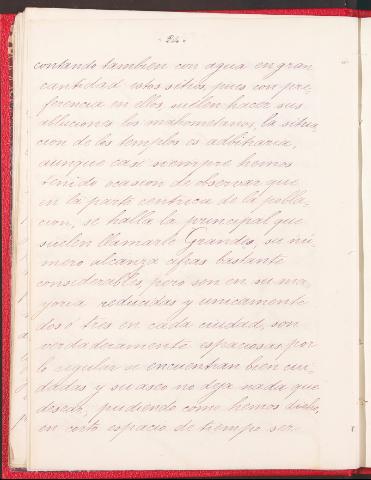 contando tambien con agua en gran
cantidad estos sitios, pues con pre-
ferencia en ellos suelen hacer sus
abluciones los mahometanos, la situa-
cion de los templos es adbitraria,
aunque casi siempre hemos
tenido ocasion de observar que
en la parte centrica de la pobla-
cion, se halla la principal que
suelen llamarle Grande, su nú-
mero alcanza cifras bastante
considerables pero son en su ma-
yoria reducidas y unicamente
dos ó tres en cada ciudad, son
verdaderamente espaciosas por
lo regular se encuentran bien cui-
dadas y su aseo no deja nada que
desear, pudiendo como hemos dicho,
en corto espacio de tiempo ser-